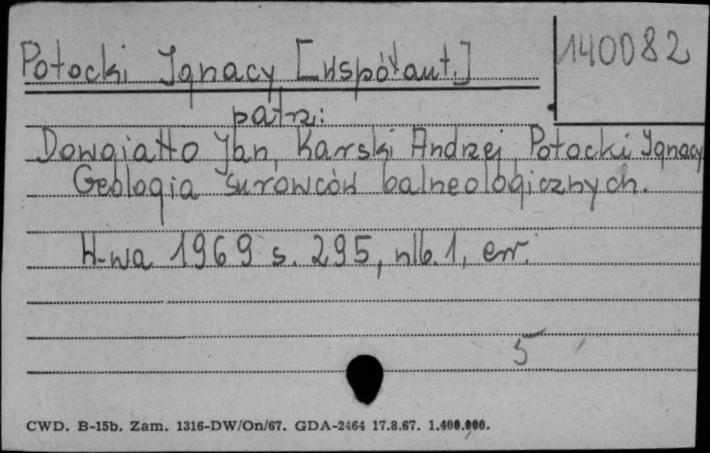 140082
Potocki Ignacy [współaut.]
patrz:
Dowgiałło Jan, Karski Andrzej, Potocki Ignacy
Geologia surowców balneologicznych.
W-wa 1969 s. 295, nlb. 1, err.
5
CWD. B-15b. Zam. 1316-DW/On/67. GDA-2464 17.8.67. 1.400.000.